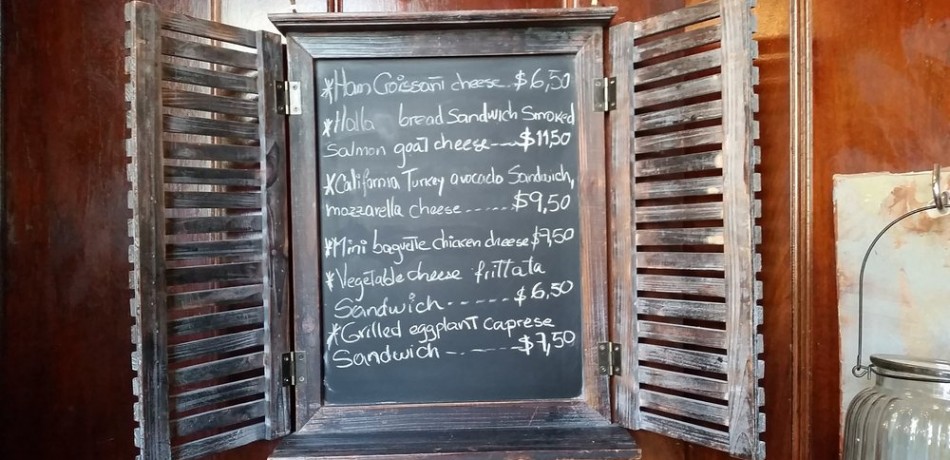 *Ham Croissant cheese..$6,50
*Halla bread Sandwich Smoked
Salmon goat cheese----$11,50
*California Turkey avocado Sandwich,
mozzarella cheese......$9,50
*Mini baguette chicken cheese $7,50
*Vegetable cheese frittata
Sandwich------$6,50
*Grilled eggplant caprese
Sandwich------$7,50